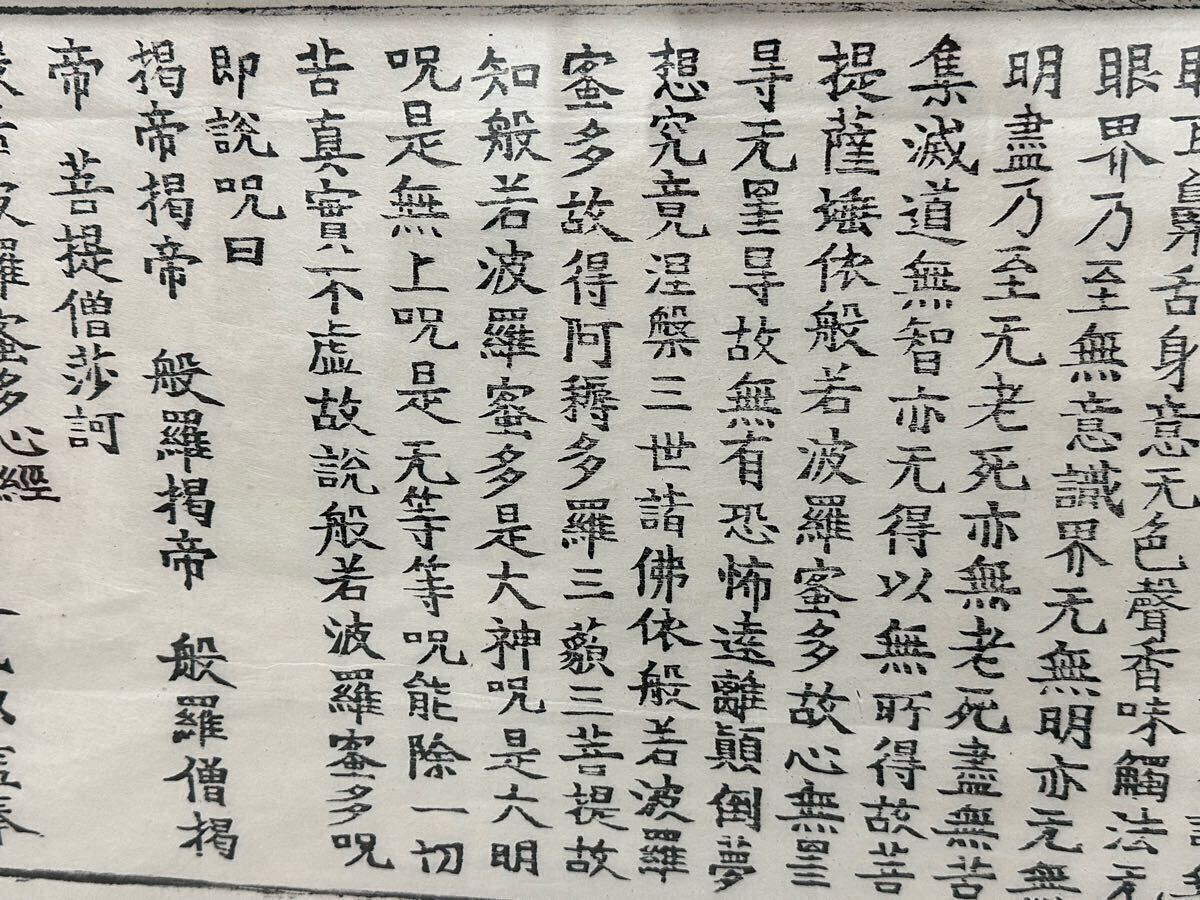 眼耳鼻舌身意无色聲香味觸法无
眼界乃至無意識界无無明亦无無
明盡乃至无老死亦無老死盡無苦
集滅道無智亦无得以無所得故菩
提薩埵依般若波羅蜜多故心無罣
㝵无罣㝵故無有恐怖遠離顛倒夢
想究竟涅槃三世諸佛依般若波羅
蜜多故得阿耨多羅三藐三菩提故
知般若波羅蜜多是大神呪是大明
呪是無上呪是无等等呪能除一切
苦真實不虛故說般若波羅蜜多呪
即說呪曰
揭帝揭帝 般羅揭帝 般羅僧揭
帝 菩提僧莎訶
般若波羅蜜多心經